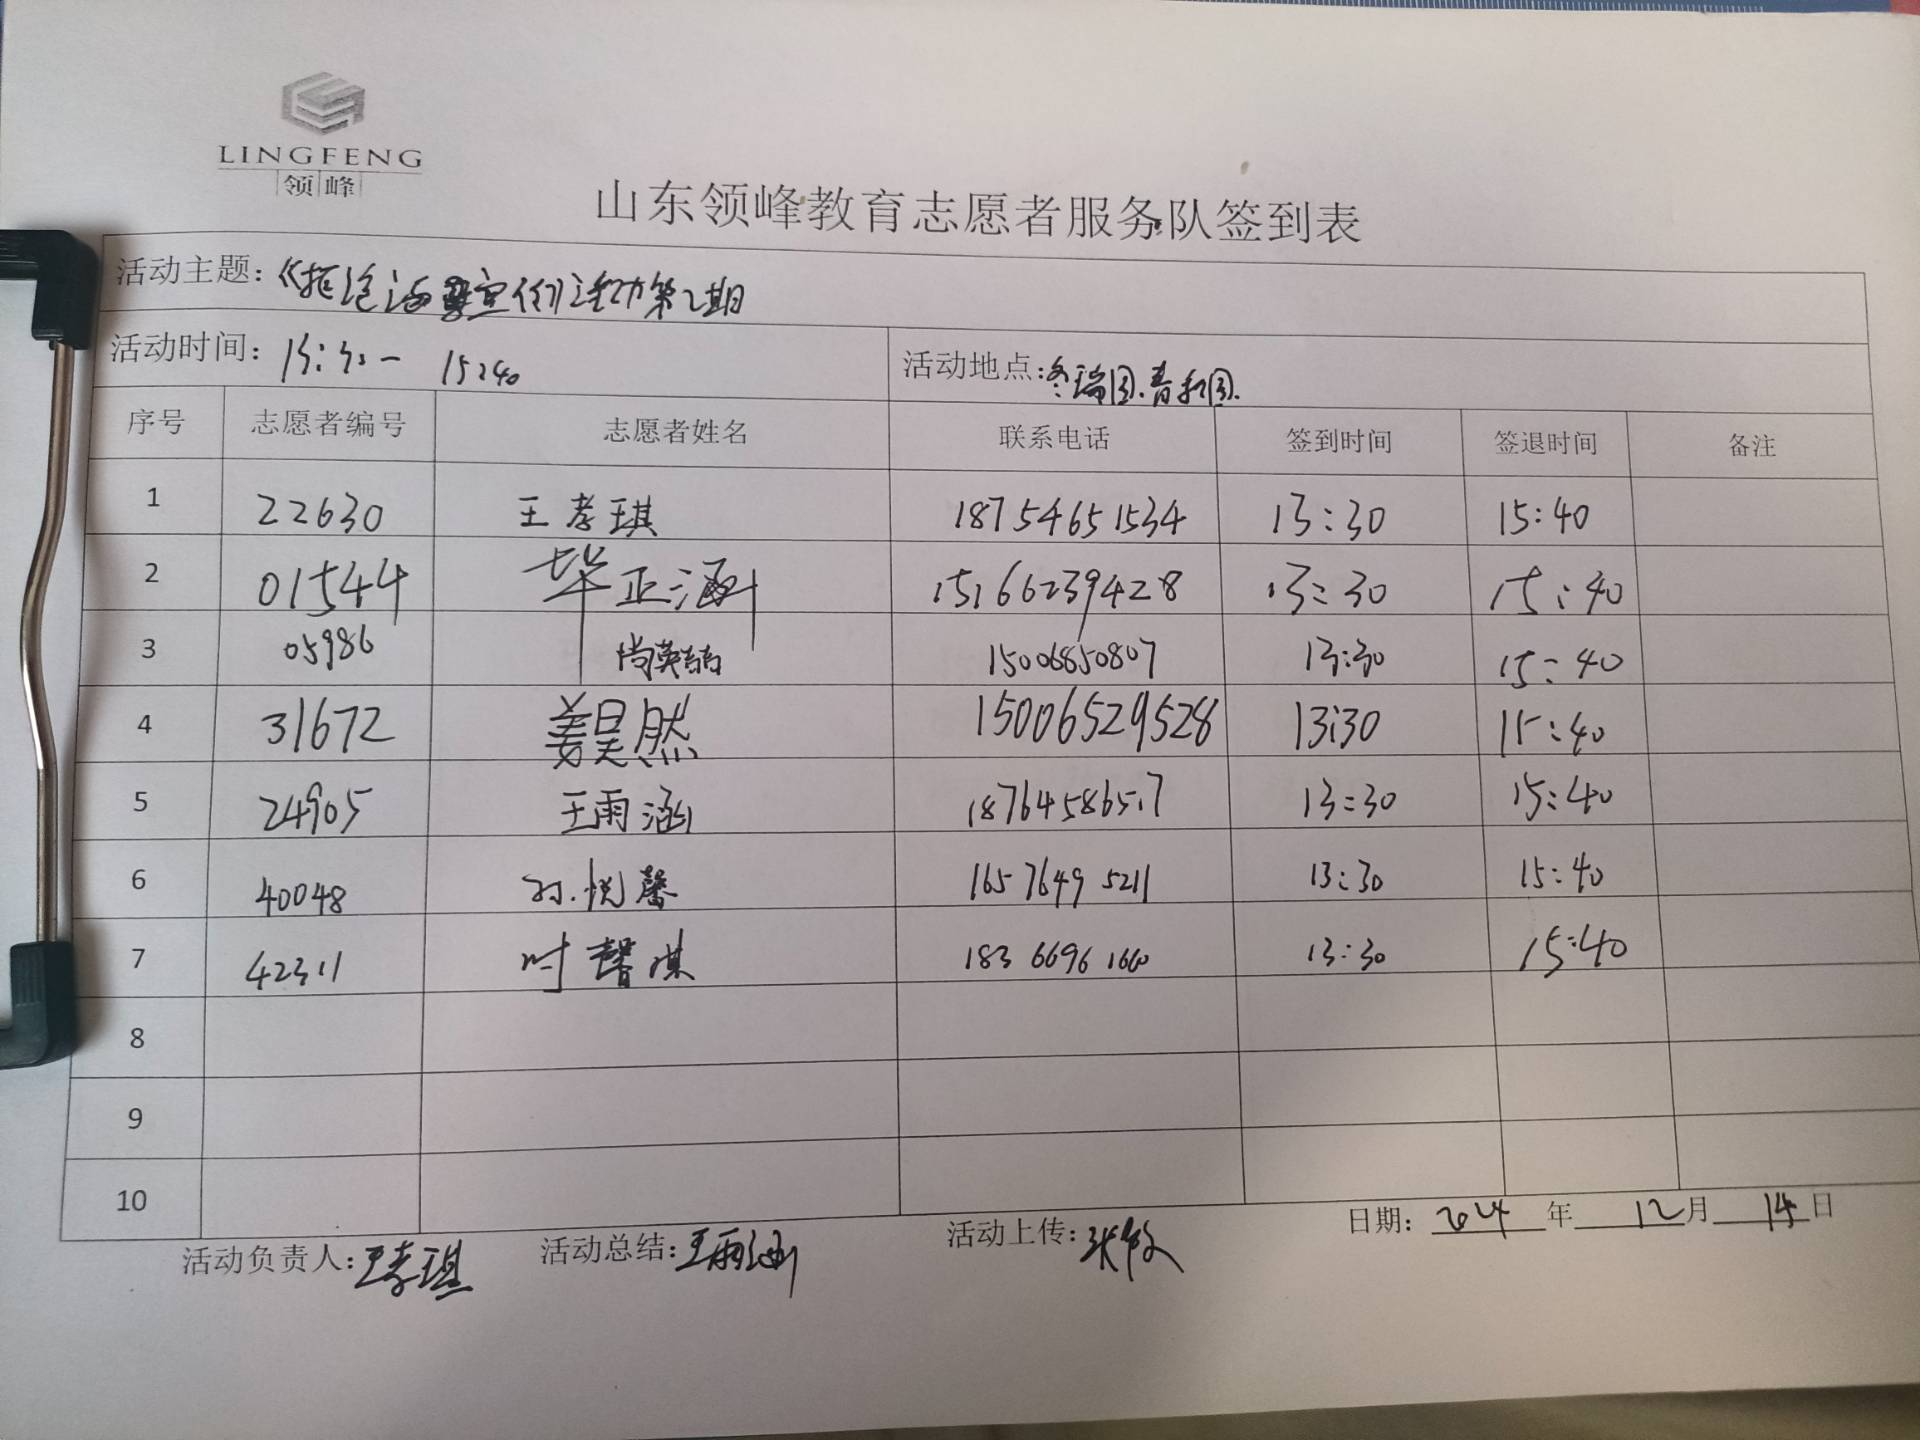 LINGFENG
领峰
山东领峰教育志愿者服务队签到表
活动主题：活动第2期
活动时间：13:30— 15:40
活动地点：冬瑞园.青和园.
序号 志愿者编号 志愿者姓名 联系电话 签到时间 签退时间 备注
1 22630 王孝琪 18754651534 13:30 15:40
2 01544 毕正涵 15166239428 13:30 15:40
3 05986 尚英喆 15006850807 13:30 15:40
4 31672 姜昊然 15006529528 13:30 15:40
5 24905 王雨涵 18764586517 13:30 15:40
6 40048 孙悦馨 165 7649 5211 13:30 15:40
7 42311 时馨淇 183 6696 1660 13:30 15:40
8
9
10
活动负责人：王孝琪 活动总结：王雨涵 活动上传：张敏 日期： 年 12 月 14 日